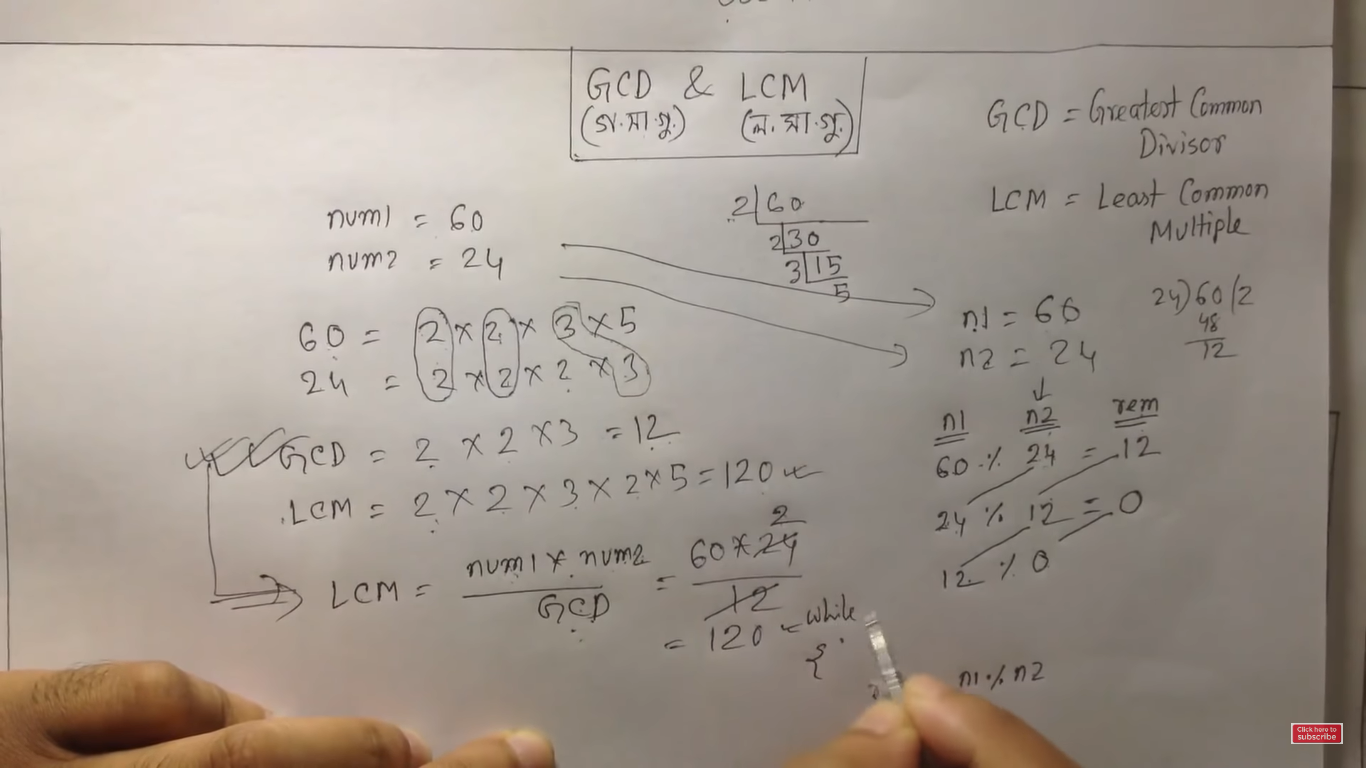 GCD & LCM
(গ.সা.গু.) (ল.সা.গু.)
GCD = Greatest Common
Divisor
LCM = Least Common
Multiple
num1 = 60
num2 = 24
2 60
2 30
3 15
5
60 = 2 × 2 × 3 × 5
24 = 2 × 2 × 2 × 3
GCD = 2 × 2 × 3 = 12
LCM = 2 × 2 × 3 × 2 × 5 = 120
LCM = num1 * num2 / GCD = 60 * 24 / 12
2
= 120
while
{
n1 = 60
n2 = 24
24)60(2
48
12
n1 n2 rem
60 % 24 = 12
24 % 12 = 0
12 % 0
n1 % n2
Click here to
subscribe